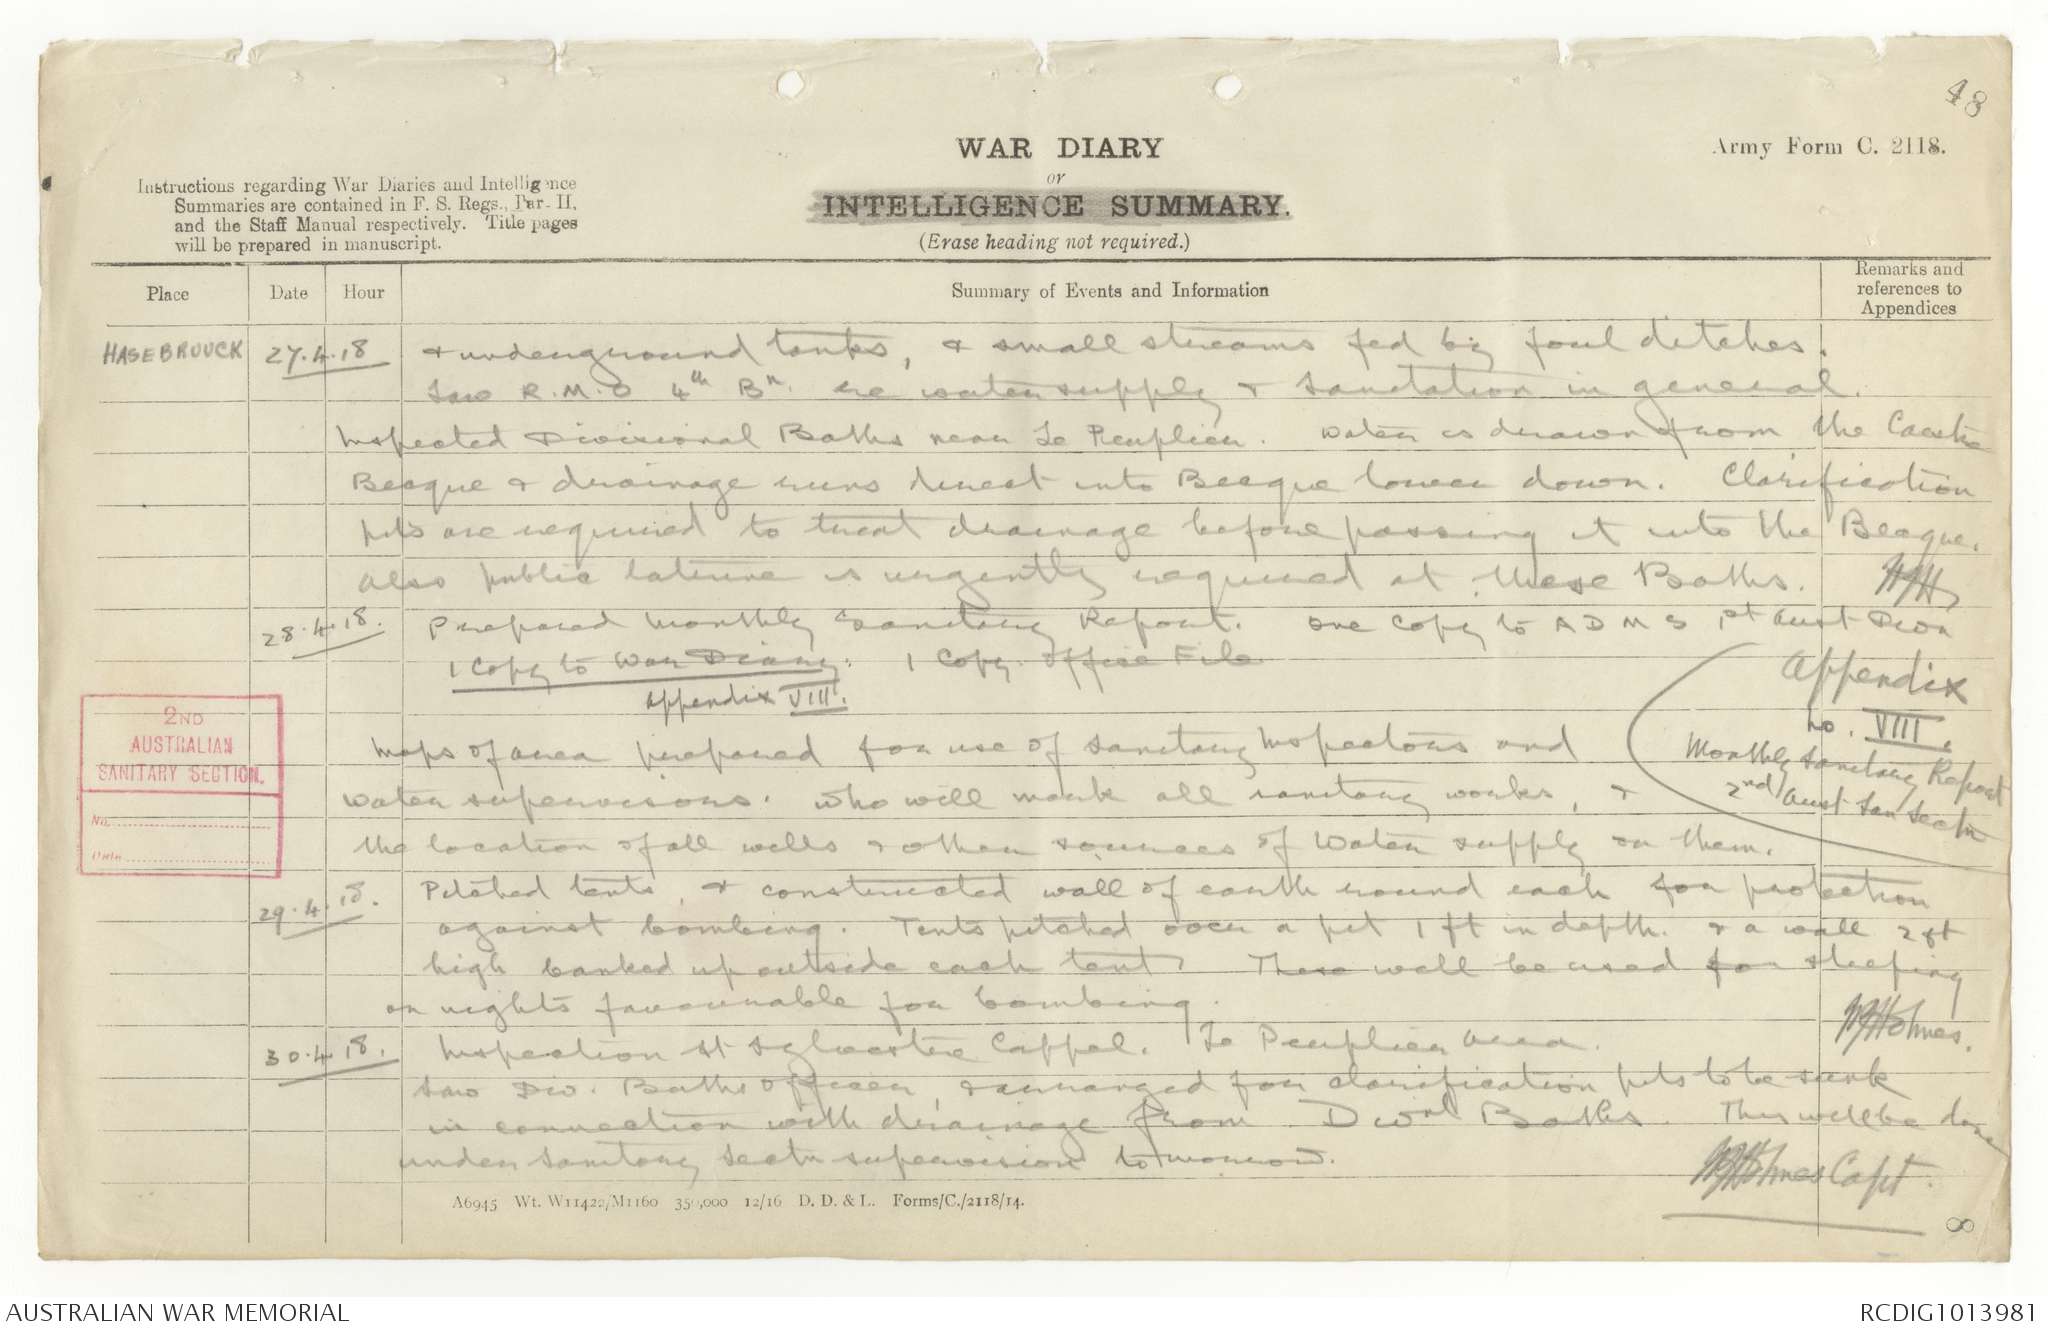 48
WAR DIARY
or
INTELLIGENCE SUMMARY.
(Erase heading not required.)
Army Form C. 2118.
Instructions regarding War Diaries and Intelligence
Summaries are contained in F. S. Regs., Part II,
and the Staff Manual respectively. Title pages
will be prepared in manuscript.
Place
Date
Hour
Summary of Events and Information
Remarks and
references to
Appendices
HASEBROUCK 27.4.18 & underground tanks, & small streams fed by foul ditches.
Saw R.M.O 4th Bn. re water supply & sanitation in general.
Inspected Divisional Baths near Le Peuplier. Water is drawn from the Caestre
Becque & drainage runs direct into Becque lower down. Clarification
pits are required to treat drainage before passing it into the Becque.
Also public latrine is urgently required at these Baths. WJH
28.4.18. Prepared Monthly Sanitary Report. One Copy to A D M S 1st Aust Divn
1 Copy to War Diary. 1 Copy Office File
Appendix VIII.
Appendix
No. VIII.
Monthly Sanitary Report
2nd Aust San Sectn
Maps of area prepared for use of Sanitary Inspectors and
water supervisors. who will mark all sanitary works, &
the location of all wells & other sources of water supply on them.
2ND
AUSTRALIAN
SANITARY SECTION.
No.
Date
29.4.18. Pitched tents, & constructed wall of earth round each for protection
against bombing. Tents pitched over a pit 1 ft in depth. & a wall 2 ft
high banked up outside each tent. These will be used for sleeping
on nights favourable for bombing.
WJHolmes.
30.4.18. Inspection St Sylvestre Cappel. Le Peuplier area.
Saw Div. Baths officer, & arranged for clarification pits to be sunk
in connection with drainage from Divnl Baths. This will be done
under Sanitary Sectn supervision tomorrow.
WJHolmes Capt.
8
A6945 Wt. W11422/M1160 350,000 12/16 D. D. & L. Forms/C./2118/14.
AUSTRALIAN WAR MEMORIAL
RCDIG1013981